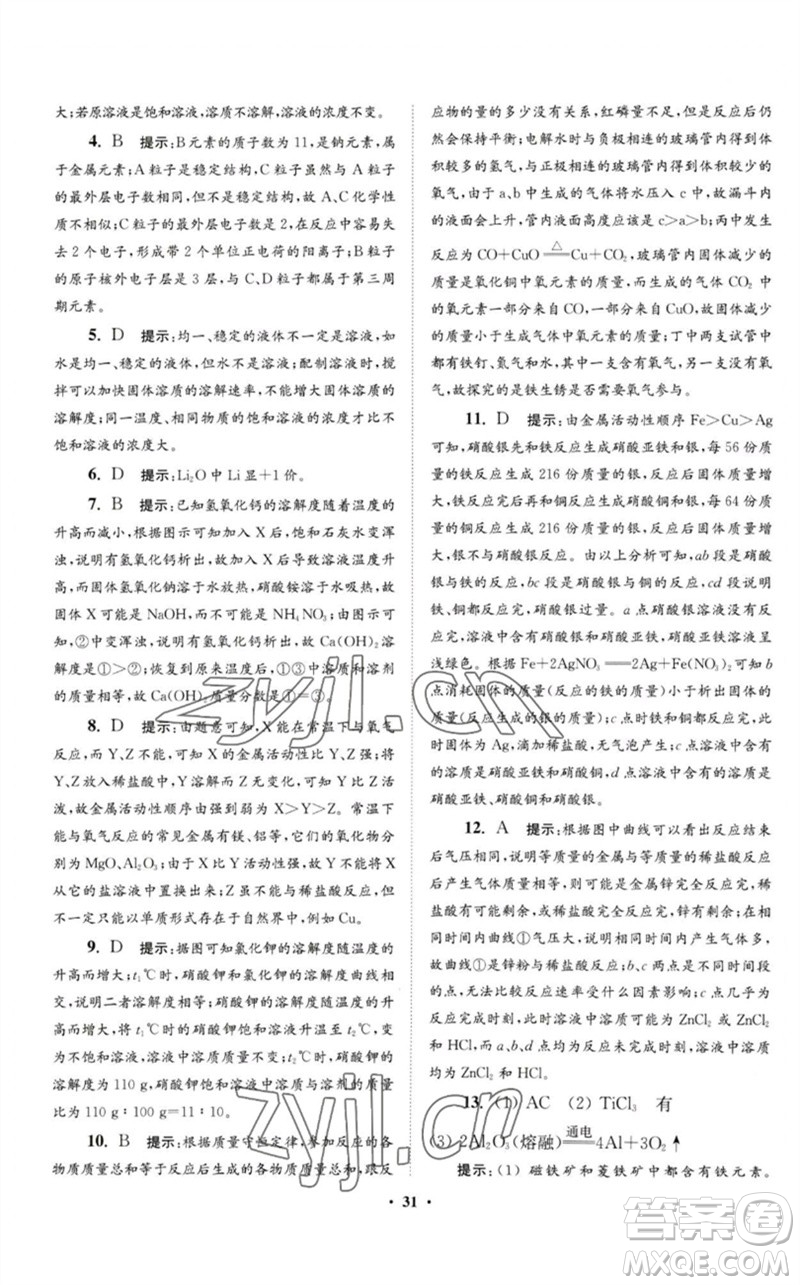 大;若原溶液是饱和溶液,溶质不溶解,溶液的浓度不变。
4. B 提示:B元素的质子数为11,是钠元素,属
于金属元素;A粒子是稳定结构,C粒子虽然与A粒子
的最外层电子数相同,但不是稳定结构,故A、C化学性
质不相似;C粒子的最外层电子数是2,在反应中容易失
去2个电子,形成带2个单位正电荷的阳离子;B粒子的
原子核外电子层是3层,与C、D粒子都属于第三周
期元素。
5. D 提示:均一、稳定的液体不一定是溶液,如
水是均一、稳定的液体,但水不是溶液;配制溶液时,搅
拌可以加快固体溶质的溶解速率,不能增大固体溶质的
溶解度;同一温度、相同物质的饱和溶液的浓度才比不
饱和溶液的浓度大。
6. D 提示:Li₂O中Li显+1价。
7. B 提示:已知氢氧化钙的溶解度随着温度的
升高而减小,根据图示可知加入X后,饱和石灰水变浑
浊,说明有氢氧化钙析出,故加入X后导致溶液温度升
高,而固体氢氧化钠溶于水放热,硝酸铵溶于水吸热,故
固体X可能是NaOH,而不可能是NH₄NO₃;由图可
知,②中变浑浊,说明有氢氧化钙析出,故Ca(OH)₂质量
分数是①>②;恢复到原来温度后,①③中溶质和溶剂
的质量相等,故Ca(OH)₂质量分数是①=③。
8. D 提示:由题意可知,X能在常温下与氧气
反应,而Y、Z不能,则X的金属活动性比Y、Z强;将
Y、Z放入稀盐酸中,Y溶解而Z无变化,则Y比Z活
泼,故金属活动性顺序由强到弱为X>Y>Z。常温下
能与氧气反应的常见金属有镁、铝等,它们的氧化物分
别为MgO、Al₂O₃;由于X比Y活动性强,故Y不能将X
从它的盐溶液中置换出来;Z虽然不与稀盐酸反应,但
不一定只能以单质形式存在于自然界中,例如Cu。
9. D 提示:据图可知氯化钾的溶解度随温度的
升高而增大;t₁℃时,硝酸钾和氯化钾的溶解度曲线相
交,说明二者溶解度相等;硝酸钾溶解度随温度的升高
而增大,将t₁℃的硝酸钾饱和溶液升温至t₂℃,没有晶
体析出,故溶液中溶质质量不变;t₂℃时,硝酸钾的溶解
度为110 g,硝酸钾饱和溶液中溶质与溶剂的质量
比为110 g∶100 g=11∶10。
10. B 提示:根据质量守恒定律,参加反应的各
物质质量总和等于反应后生成的各物质质量总和,跟反
应物的量的多少没有关系,红磷量不足,但是反应后仍
然会保持平衡;电解水时与负极相连的玻璃管内得到体
积较多的氢气,与正极相连的玻璃管内得到体积较少的
氧气,由于a、b中生成的气体将水压入c中,故漏斗内
的液面会上升,管内液面高度应该是c>a>b;丙中发生
反应为CO+CuO=△=Cu+CO₂,玻璃管内固体减少的质
量是氧化铜中氧元素的质量,而生成的气体CO₂中的氧
元素一部分来自CO,一部分来自CuO,故固体减少的
质量小于生成气体中氧元素的质量;丁中两支试管中
都有铁钉、氮气和水,其变量为是否含有氧气,氧气是变
量,故探究的是铁生锈是否需要氧气参与。
11. D 提示:由金属活动性顺序Fe>Cu>Ag
可知,硝酸银先和铁反应生成硝酸亚铁和银,每56份质
量的铁反应生成216份质量的银,反应后固体质量增
大,铁反应完后再和铜反应生成硝酸铜和银,每64份质
量的铜反应生成216份质量的银,反应后固体质量增
大,银不与硝酸银反应。由以上分析可知,ab段是硝酸
银与铁反应,bc段是硝酸银与铜反应,cd段说明铁、铜
都反应完,硝酸银过量。a点硝酸银溶液没有反应完,
溶液中含有硝酸银和硝酸亚铁,硝酸亚铁溶液呈浅绿
色。根据Fe+2AgNO₃══2Ag+Fe(NO₃)₂可知b点消
耗固体的质量(反应的铁的质量)小于生成固体的质量
(反应生成的银的质量);c点时铁和铜完全反应,固体
为Ag,滴加稀盐酸,无气泡产生;c点溶液中含有的溶质
是硝酸亚铁和硝酸铜,d点溶液中含有的溶质是硝酸亚
铁、硝酸铜和硝酸银。
12. A 提示:根据图中曲线可以看出反应结束
后气压相同,说明等质量的金属与等质量的稀盐酸反应
后产生气体质量相同,可能是金属锌完全反应完,稀盐
酸有可能剩余,或者稀盐酸完全反应完,锌有剩余;在相
同时间内曲线①气压大,说明在相同时间内产生氢气
多,故曲线①是锌粉与盐酸反应;因为不知c点的时间
点,无法比较反应速率受什么因素影响;c点几乎为反
应完成时刻,此时溶液中溶质可能为ZnCl₂或为ZnCl₂
和HCl,而a、b、d点均为反应未完成时刻,溶液中溶质
均为ZnCl₂和HCl。
13. (1) AC (2) TiCl₃ 有
(3) 2Al₂O₃(熔融)=通电=4Al+3O₂↑
提示:(1) 磁铁矿和菱铁矿中都含有铁元素。
· 31 ·
zyjl.cn
zyjl.cn
答案卷
MXQE.COM